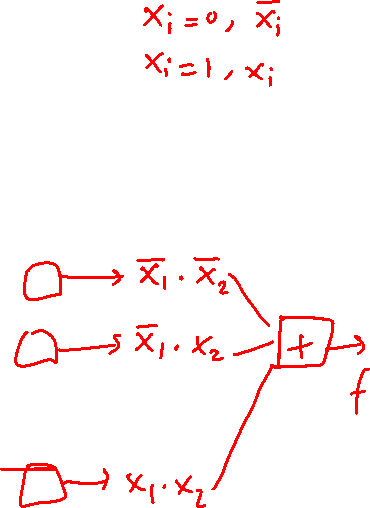 xᵢ = 0, x̅ᵢ
xᵢ = 1, xᵢ
x̅₁ · x̅₂
x̅₁ · x₂
+
f
x₁ · x₂